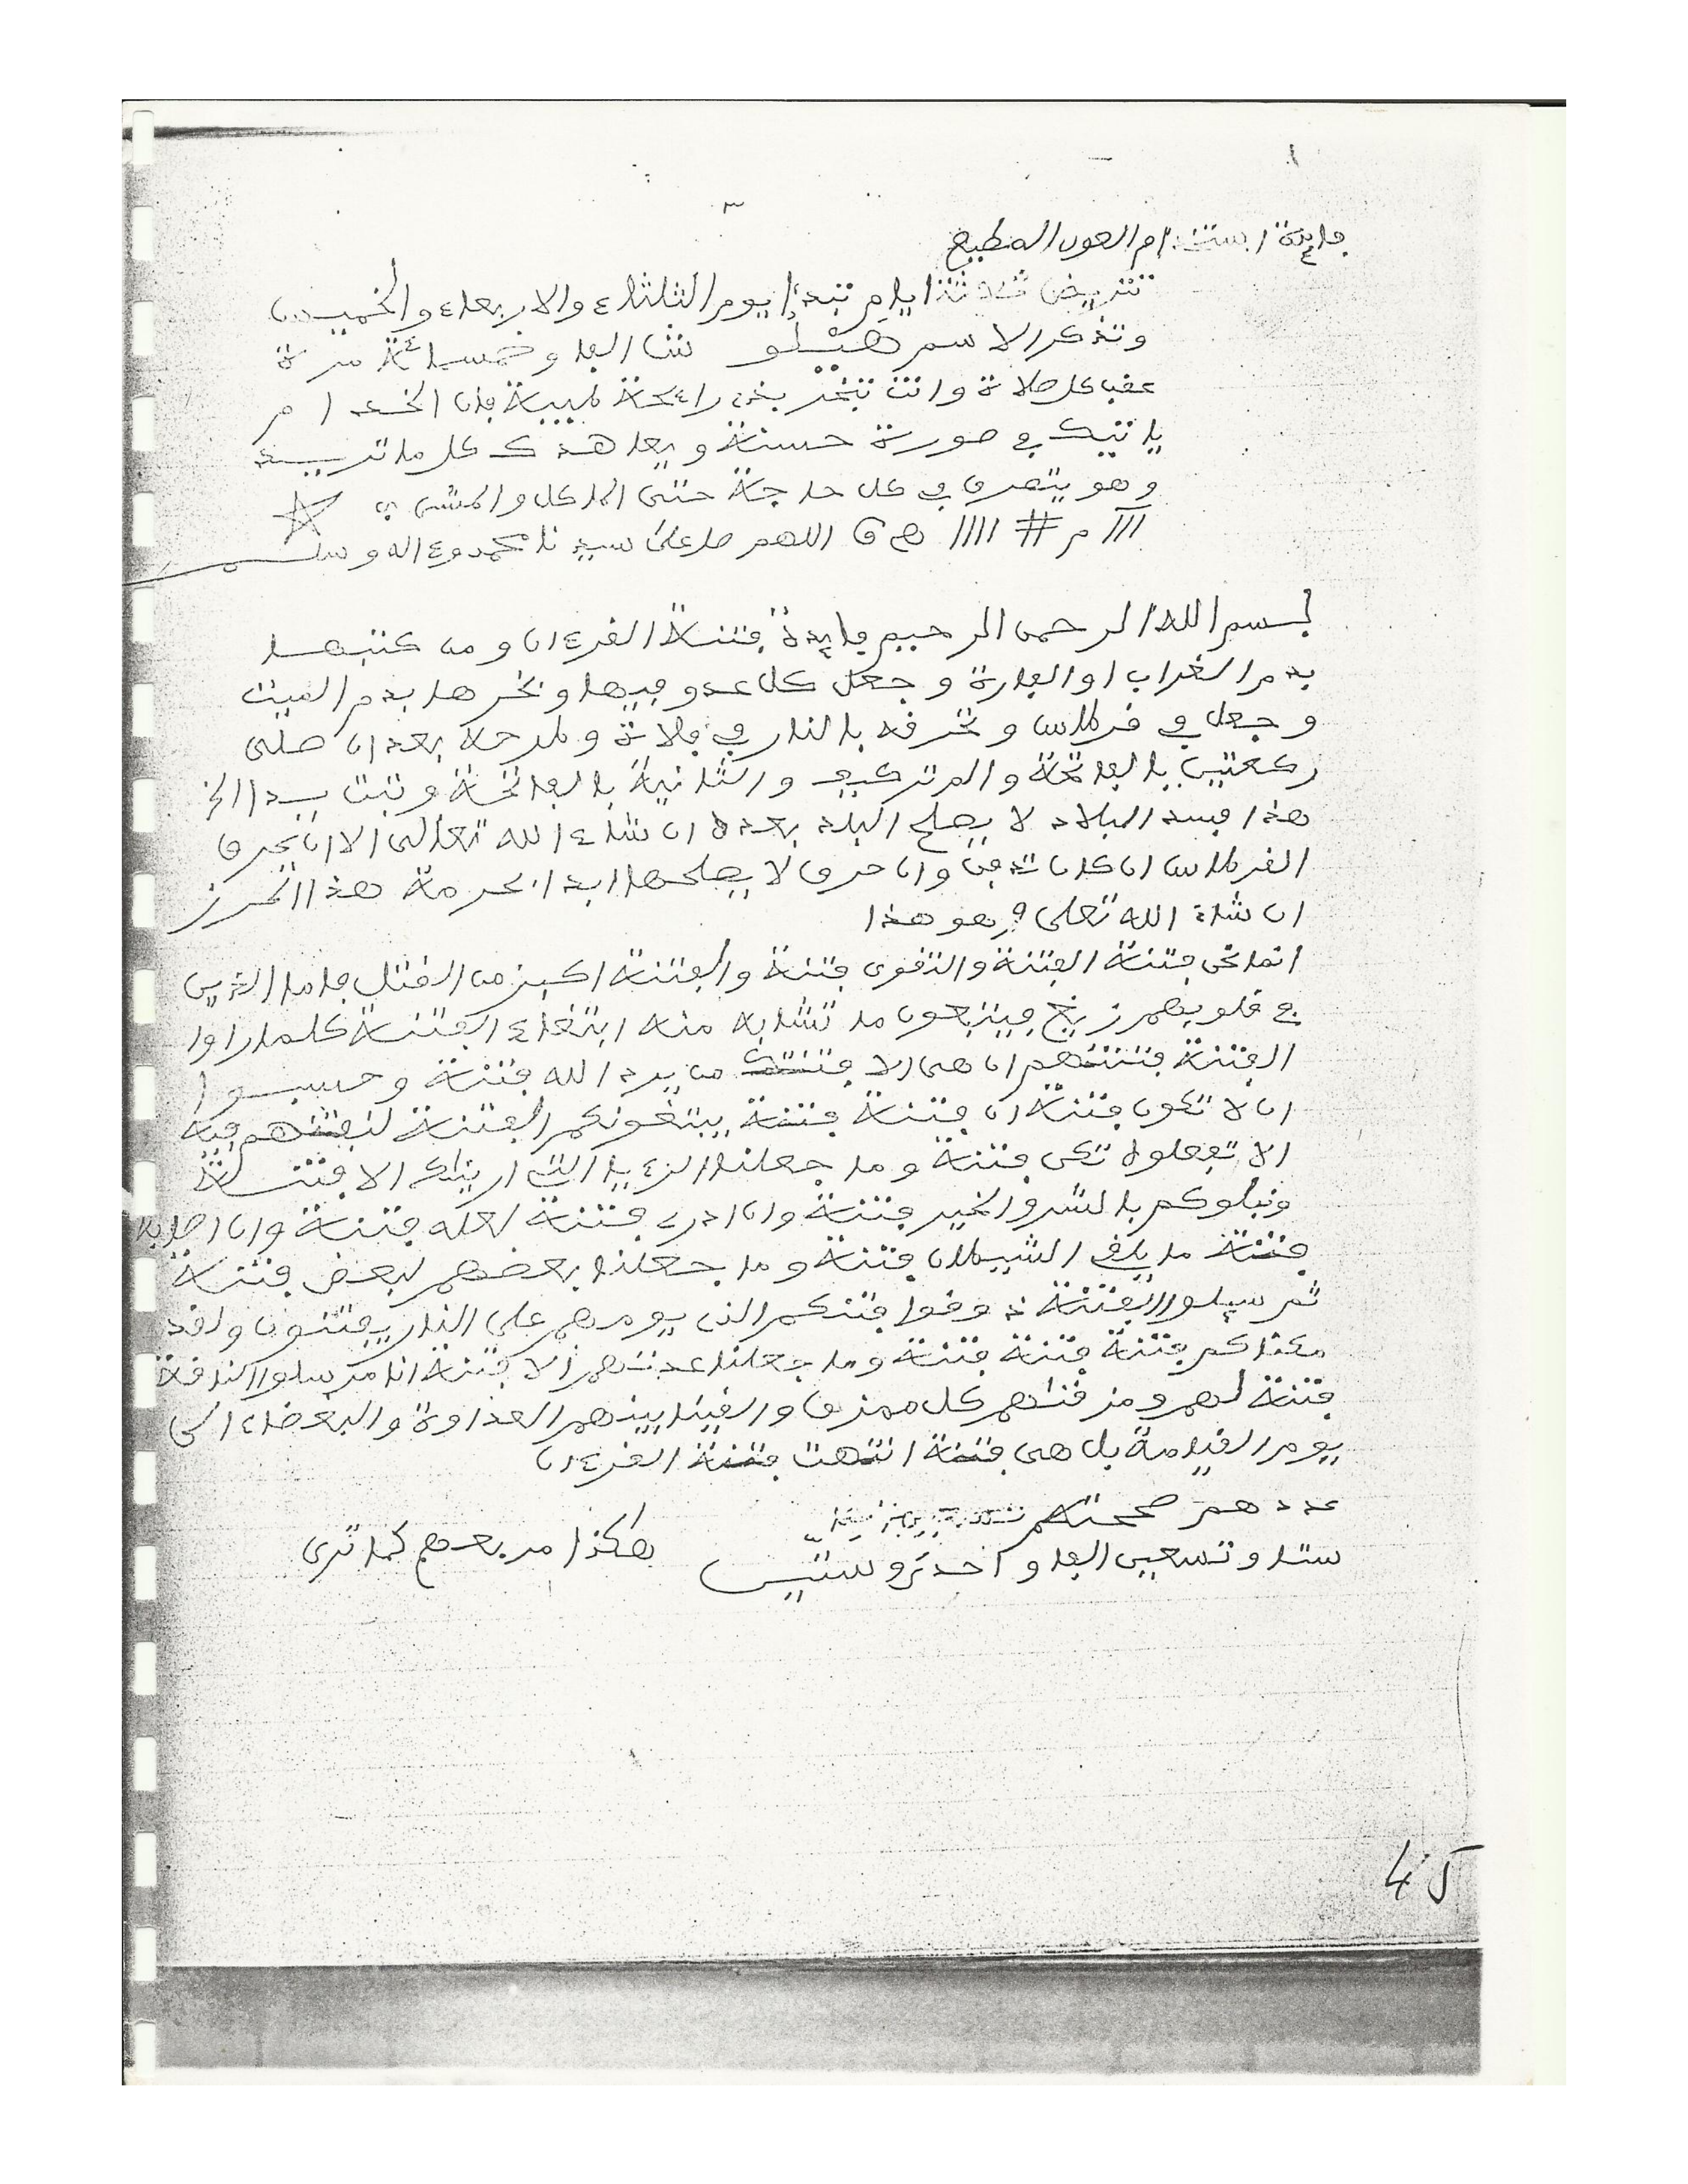 فايدة استخدام العون المطيع
تتريض ثلاثة ايام تبدأ يوم الثلثاء والاربعاء والخميس
وتذكر الاسم هيلو الفا وخمسمائة مرة
عقب كل صلاة وانت تبخر بخور رائحة طيبة فان الخدام
ياتيك في صورة حسنة ويعاهدك كل ما تريد
وهو يتصرف في كل حاجة حتى الماكل والمشي
ااا م # اااا اللهم صل على سيدنا محمد وءاله وسلم
بسم الله الرحمن الرحيم فايدة فتنة القرءان ومن كتبها
بدم الغراب او الفارة وجعل كل عدو فيها وبخرها بدم الميت
وجعل في قرطاس وتحرقه بالنار في فلاة وطرحه بعد ان صلى
ركعتين بالفاتحة والم تر كيف والثانية بالفاتحة وتبت يدا الخ
هذا فيسد البلاد لا يصلح البلد بعده ان شاء الله تعالى الا ان يحرق
القرطاس ان كان دفن وان حرق لا يصلحها ابدا بحرمة هذا الحرز
ان شاء الله تعلى وهو هذا
انما نحن فتنة الفتنة والتقوى فتنة والفتنة اكبر من القتل فاما الذين
في قلوبهم زيغ فيتبعون ما تشابه منه ابتغاء الفتنة كلما راوا
الفتنة فتنتهم ان هي الا فتنتك من يرد الله فتنة وحسبوا
ان لا تكون فتنة ان فتنة فتنة يبتغونكم الفتنة لنفتنهم فيه
الا تفعلوه تكن فتنة وما جعلنا الرءيا التي اريناك الا فتنة
ونبلوكم بالشر والخير فتنة وان ادري فتنة لعله فتنة وان اصابه
فتنة ما يلقي الشيطان فتنة وما جعلنا بعضهم لبعض فتنة
ثم سيلوا الفتنة ذوقوا فتنتكم الذي يوم هم على النار يفتنون ولقد
فتنة فتنة فتنة وما جعلنا عدتهم الا فتنة انا مرسلوا الناقة
فتنة لهم ومزقناهم كل ممزق والقينا بينهم العداوة والبغضاء الى
يوم القيامة بل هي فتنة انتهت فتنة القرءان
عددهم
ستا وتسعين الفا واحد وستين هكذا مربعهم كما ترى
45